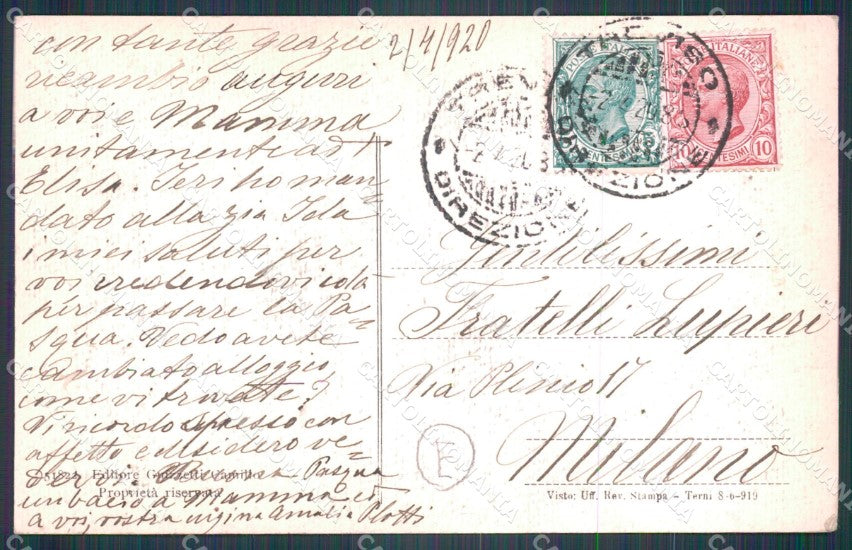 2/4/920
con tante grazie
ricambio auguri
a voi e Mamma
unitamente a
Elisa. Ieri ho man=
dato alla zia Ida
i miei saluti per
voi credendovi colà
per passare la Pa=
squa. Vedo avete
cambiato alloggio,
come vi trovate?
Vi ricordo spesso con
affetto e desidero ve=
der Pasqua
un bacio a Mamma e
a voi, vostra cugina Amalia Plotti
Editore
Proprietà riservata
TREVISO
DIREZIONE
POSTE ITALIANE
CENTESIMI
10 CENTESIMI 10
Gentilissimi
Fratelli Lupieri
Via Plinio 17
Milano
E
Visto: Uff. Rev. Stampa - Terni 8-6-919
CARTOLINOMANIA